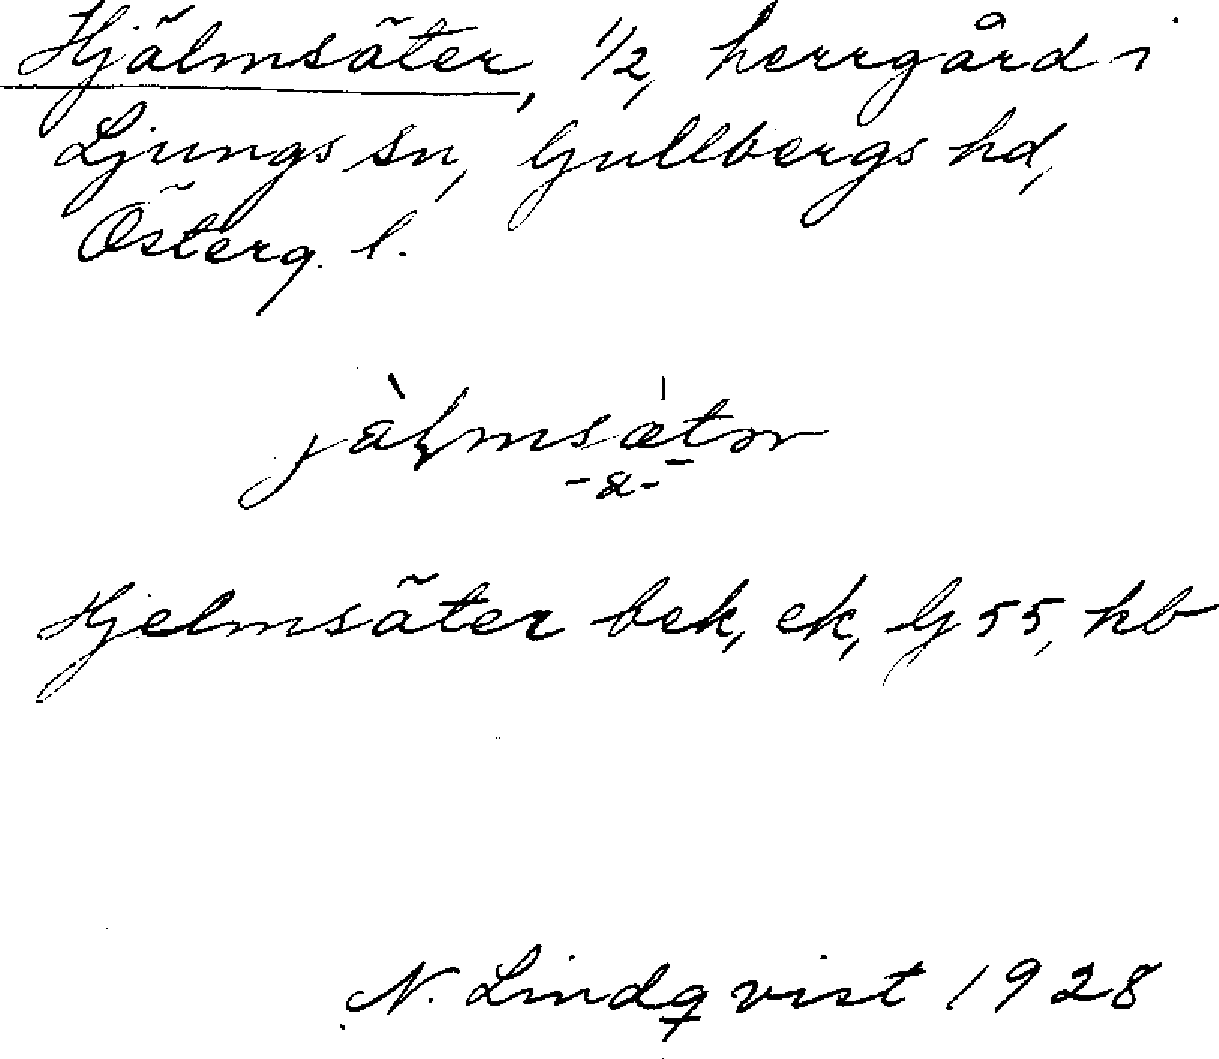 Hjälmsäter, 1/2, herrgård i
Ljungs sn, Gullbergs hd,
Österg. l.
Hjelmsäter bek, ek, G 55, hb
N. Lindqvist 1928